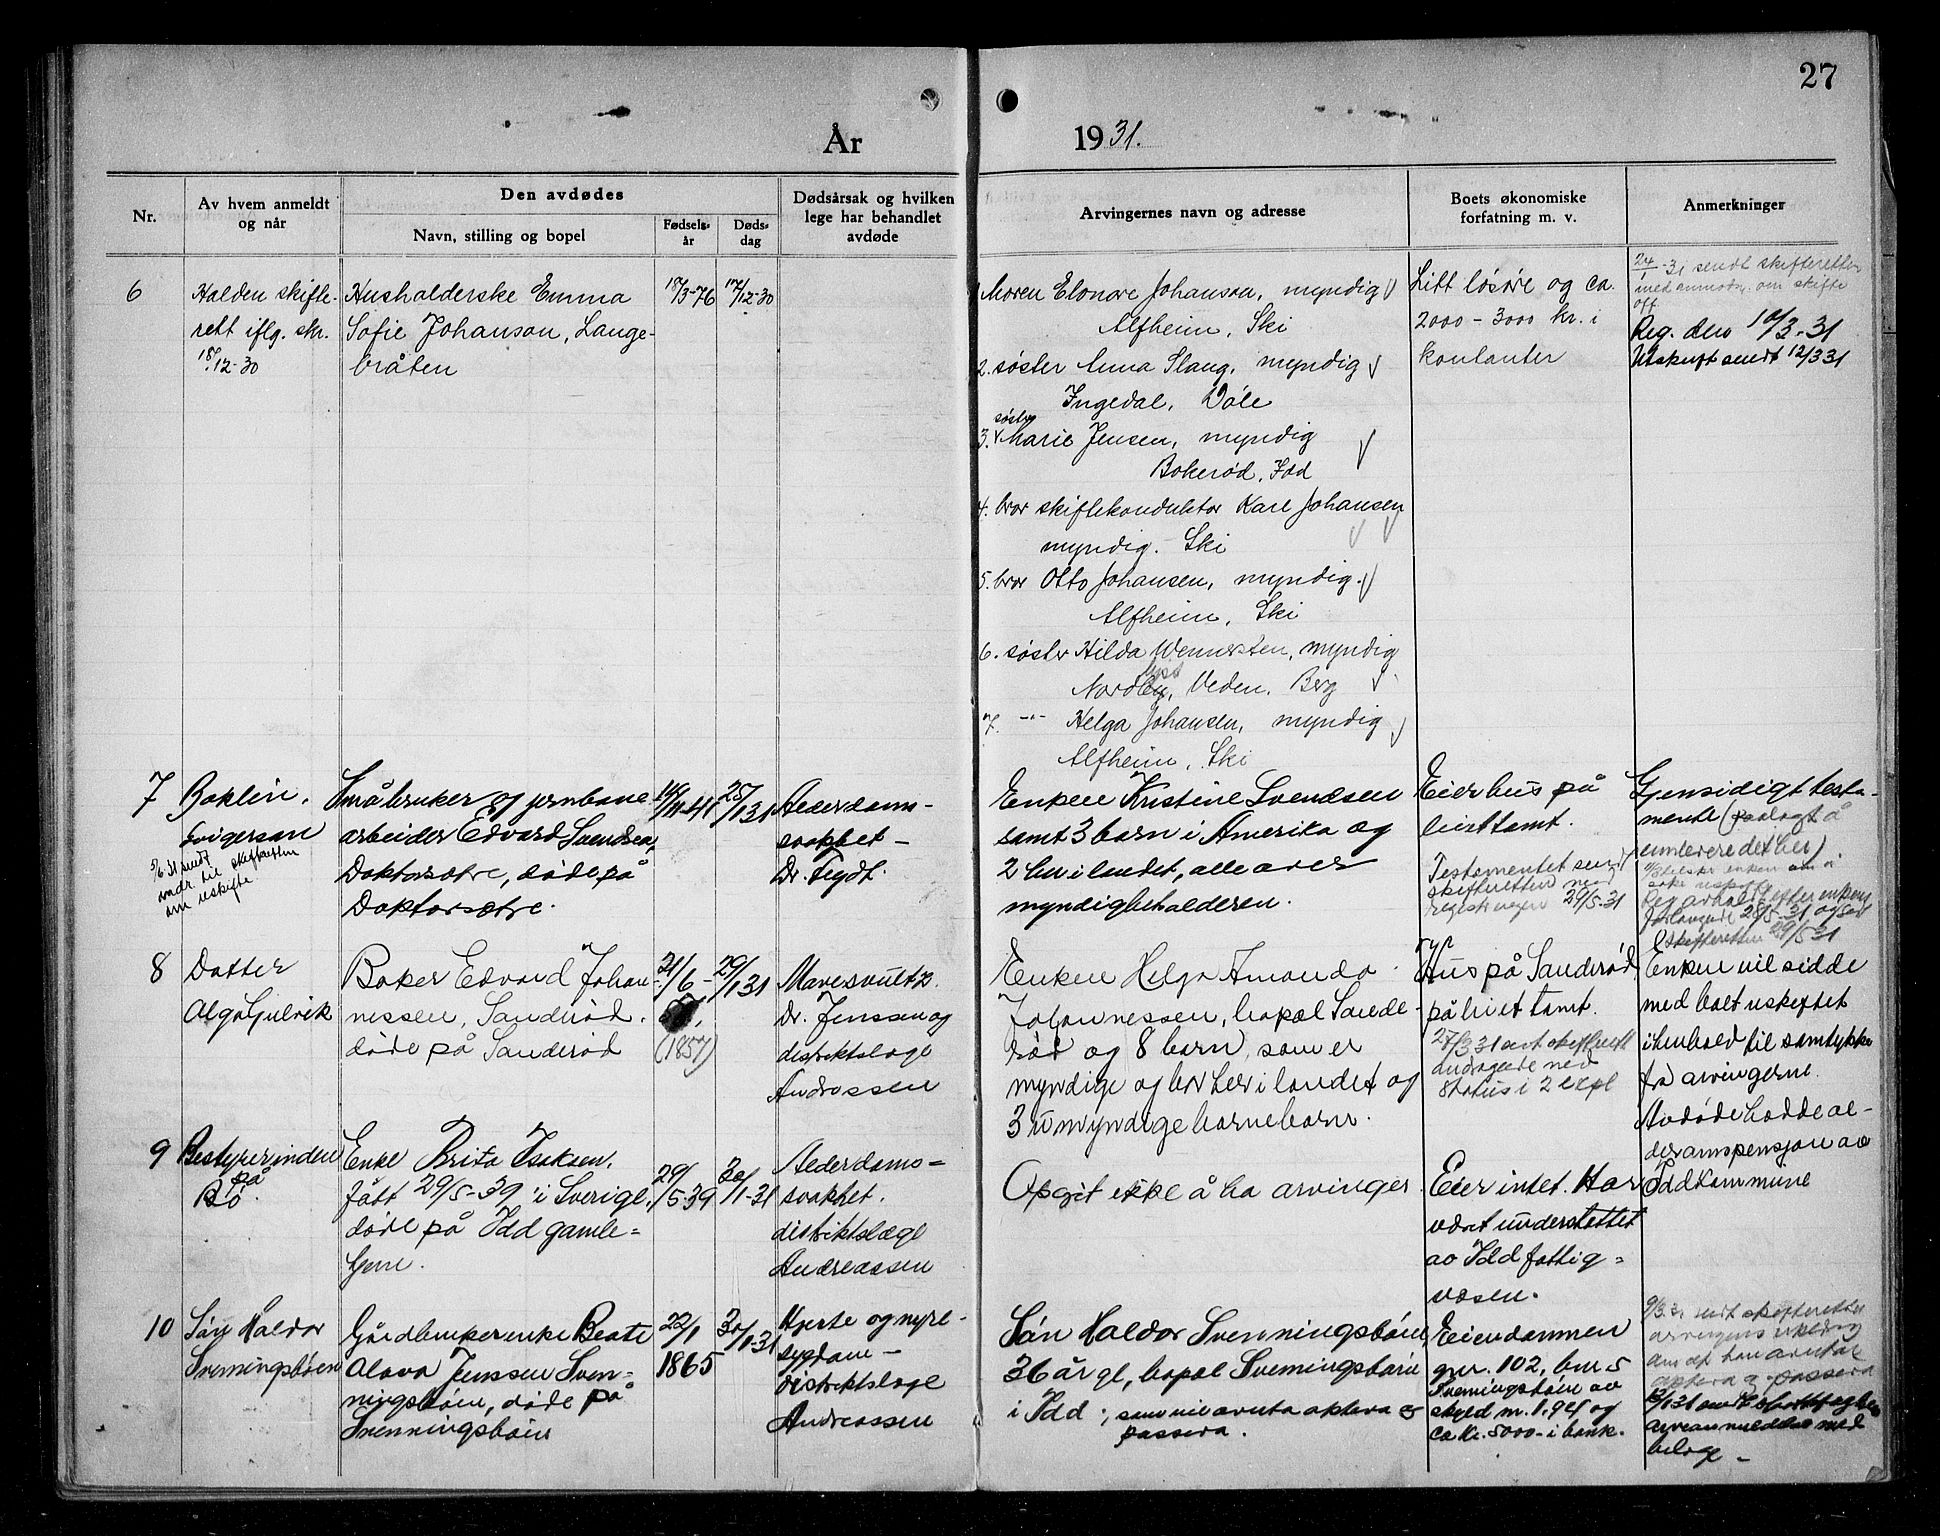 27
År 1931.
Nr.
Av hvem anmeldt
og når
Den avdødes
Navn, stilling og bopel
Fødsels-
år
Døds-
dag
Dødsårsak og hvilken
lege har behandlet
avdøde
Arvingernes navn og adresse
Boets økonomiske
forfatning m. v.
Anmerkninger
6
Halden skifte-
rett iflg. skr.
18/12-30
Husholderske Emma
Sofie Johanson, Lange-
bråten
18/3-76
17/12-30
1 Moren Elonore Johanson, myndig
Alfheim, Ski
2. søster Anna Slang, myndig
Ingedal,
søster
3. Marie Jensen, myndig
Bokerød, Idd
4. bror skiftekonduktør Karl Johansen
myndig. Ski
5. bror Otto Johansen, myndig.
Alfheim, Ski
6. søster Hilda Wennersten, myndig
Nordby, Veden, Berg
7. -"- Helga Johansen, myndig
Alfheim, Ski
Litt løsøre og ca.
2000 - 3000 kr. i
kontanter
24/ -31 sendt skifteretten
med anmodn. om skifte
off.
Reg. den 10/3-31
Utskrift sendt 12/3 31
7
Svigersøn
5/6 31 sendt
andr. til skifteretten
om uskifte.
Småbruker og jernbane
arbeider Edvard Svendsen,
Doktorsætre, døde på
Doktorsætre.
14/11-41
25/1 31
Alderdoms-
svakhet -
Dr. Tegdt.
Enken Kristine Svendsen
samt 3 barn i Amerika og
2 her i landet, alle over
myndighetsalderen.
Eier hus på
leiet tomt.
Testamentet sendt
skifteretten med
registreringen 29/5-31
Gjensidig testa-
mente (pålagt å
innlevere det her)
Reg avholdt efter enkens
forlangende 28/5-31 og sendt
skifteretten 29/5 31
8
Datter
Olga Gulvik
Baker Edvard Johan-
nessen, Sanderød.
døde på Sanderød
21/6-
(1857)
29/1 31
Mavesvulst
Dr. Jenssen og
distriktslege
Andreassen
Enken Helga Amanda
Johannessen, bopel Sande-
rød og 8 barn, som er
myndige og bor her i landet og
3 umyndige barnebarn.
Hus på Sanderød
på leiet tomt.
27/3 31 sendt skifterett
andragende med
status i 2 expl
Enken vil sidde
med boet uskiftet
i henhold til samtykke
fra arvingerne.
Avdøde hadde al-
derdomspensjon av
Idd kommune
9
Bestyrerinden
på
Bø.
Enke Brita Isaksen.
født 29/5-39 i Sverige.
døde på Idd gamle-
hjem.
29/5-39
30/1-31
Alderdoms-
svakhet.
distriktslæge
Andreassen
Opgit ikke å ha arvinger
Eier intet. Har
været understøttet
av Idd fattig-
væsen.
10
Søn Haldor
Svenningsbøen
Gårdbrukerenke Beate
Olava Jenssen Sven-
ningsbøen, døde på
Svenningsbøen
22/1
1865
30/1-31
Hjerte og nyre-
sygdom -
distriktslege
Andreassen
Søn Haldor Svenningsbøen,
36 år gl, bopel Svenningsbøen
i Idd ; som vil avuta aptera og
passera.
Eiendommen
gnr. 102, bnr 5
Svenningsbøen av
skyld m. 1.94 og
ca kr. 5000- i bank.
9/3 31 sendt skifteretten
arvingens erklæring
om at han
arveanmeldelse med
bilage -